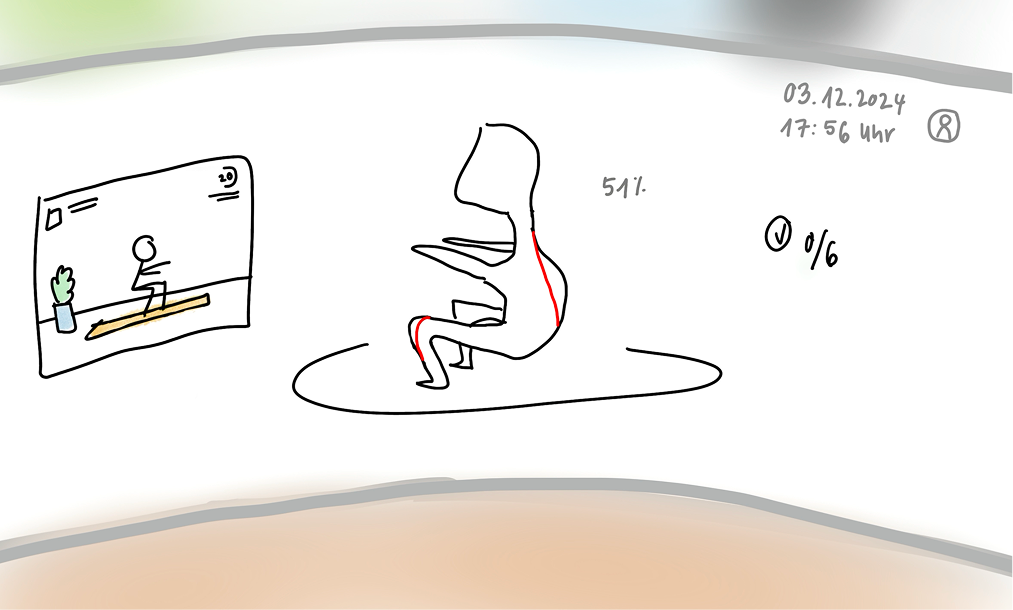 03.12.2024
17:56 Uhr
20
51%
0/6